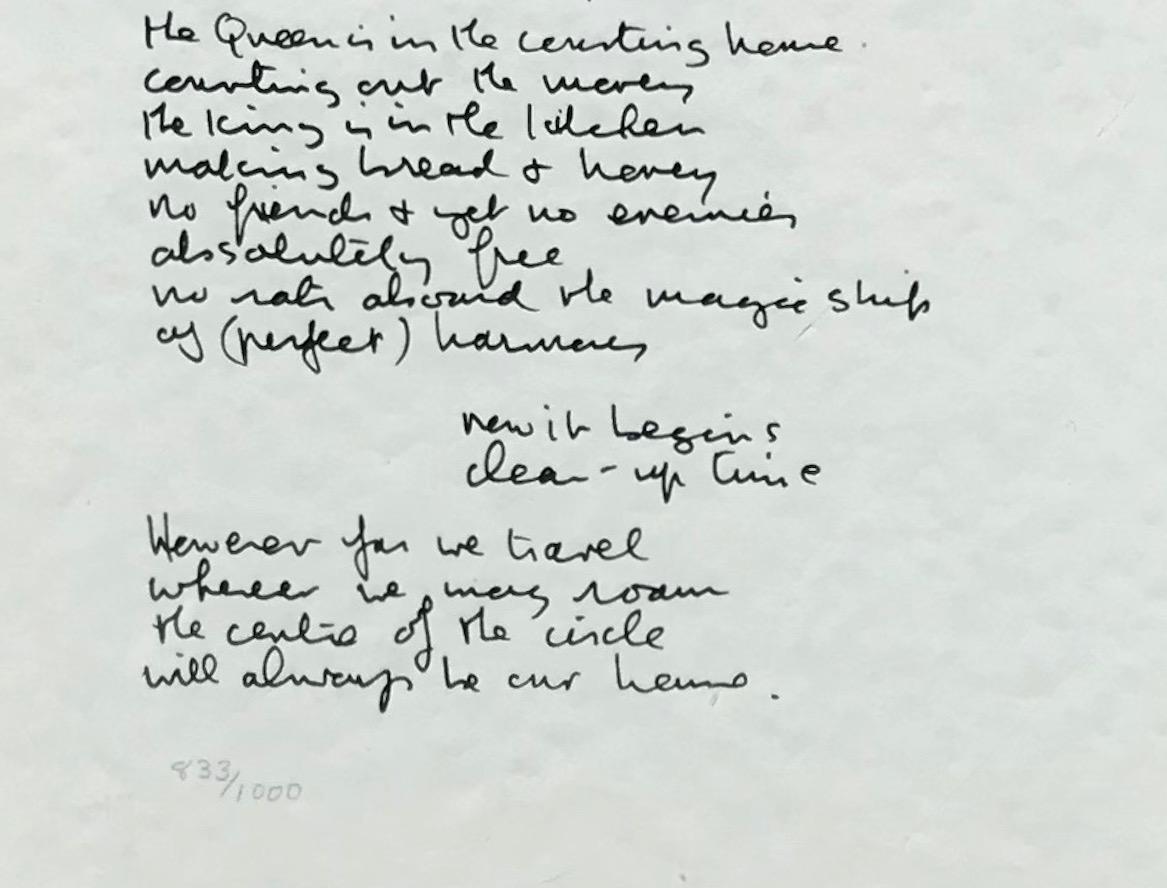 the Queen is in the counting house.
counting out the money
the king is in the kitchen
making bread & honey
no friends & yet no enemies
abssolutely free
no rats aboard the magic ship
of (perfect) harmony
now it begins
clean-up time
However far we travel
wherever we may roam
the centre of the circle
will always be our home.
833/1000